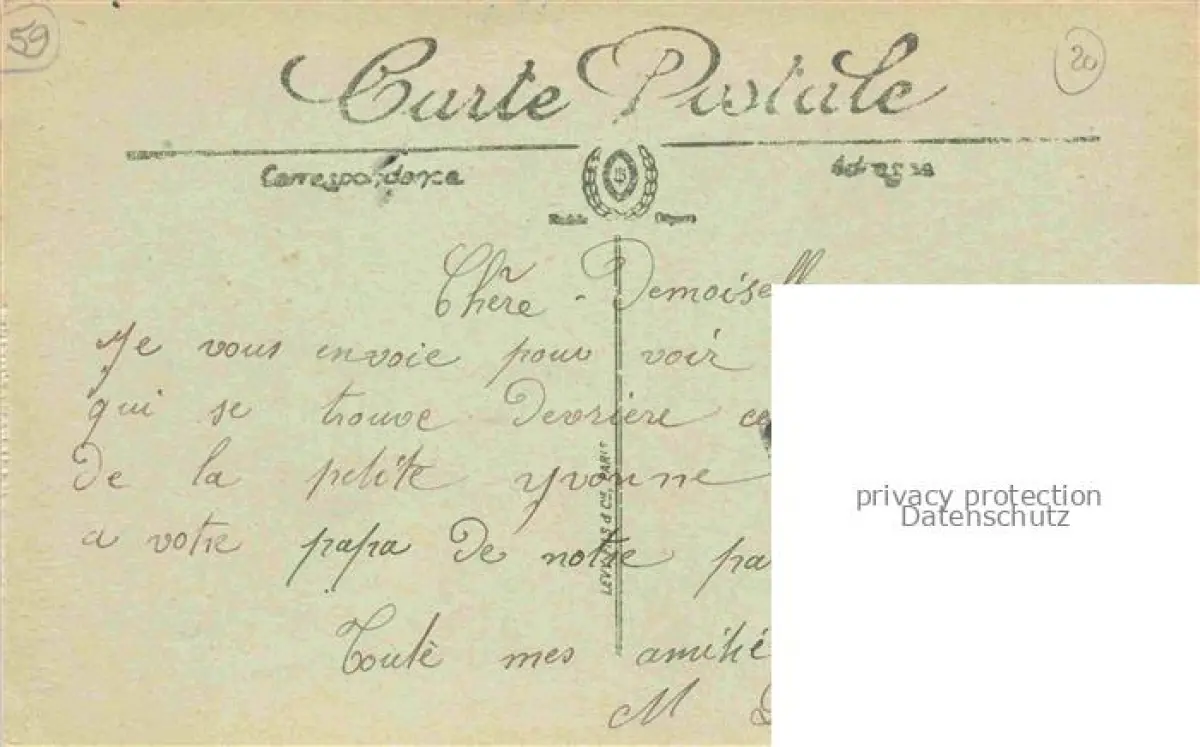 59
20
Carte Postale
Correspondance
Adresse
LS
Chère Demoisell
Je vous envoie pour voir
qui se trouve derrière ce
de la petite yvonne
a votre papa de notre pa
Toute mes amitié
M
LEVY FILS & Cie, PARIS
privacy protection
Datenschutz